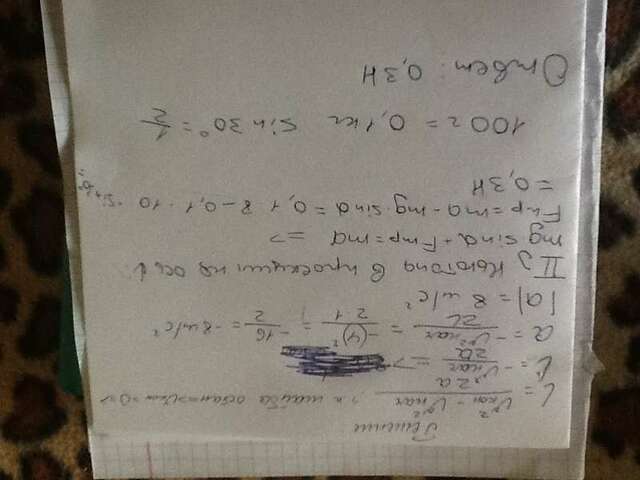 Решение
L = (V²кон - V²нач) / 2a, т.к. шайба остан. => Vкон = 0 =>
L = -V²нач / 2a =>
a = -V²нач / 2L = -(4)² / 2·1 = -16 / 2 = -8 м/с²
|a| = 8 м/с²
II з Ньютона в проекции на ось L
mg sinα + Fтр = ma =>
Fтр = ma - mg·sinα = 0,1·8 - 0,1·10·sin30° =
= 0,3Н
100г = 0,1кг sin30° = 1/2
Ответ: 0,3Н